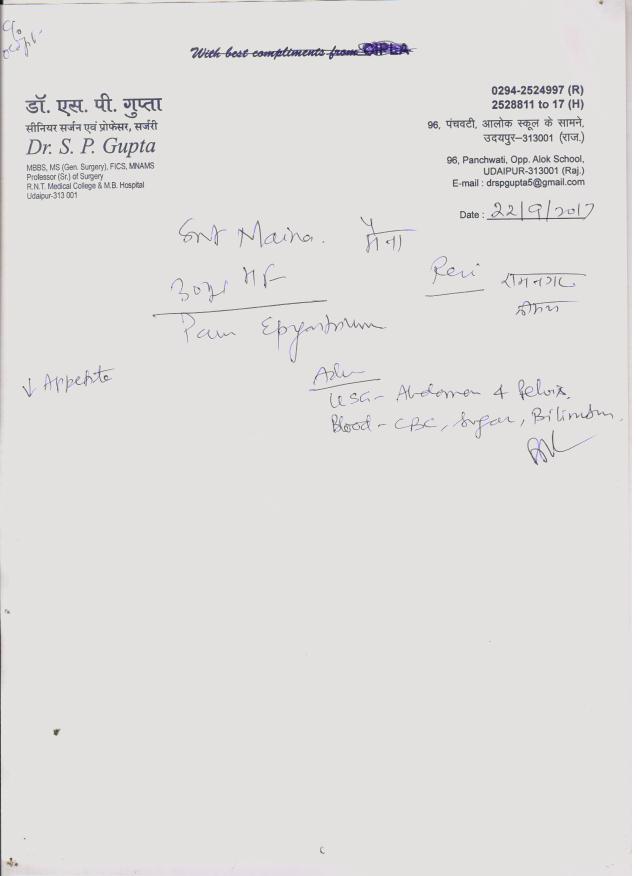 With best compliments from CIPLA
डॉ. एस. पी. गुप्ता
सीनियर सर्जन एवं प्रोफेसर, सर्जरी
Dr. S. P. Gupta
MBBS, MS (Gen. Surgery), FICS, MNAMS
Professor (Sr.) of Surgery
R.N.T. Medical College & M.B. Hospital
Udaipur-313 001
0294-2524997 (R)
2528811 to 17 (H)
96, पंचवटी, आलोक स्कूल के सामने,
उदयपुर–313001 (राज.)
96, Panchwati, Opp. Alok School,
UDAIPUR-313001 (Raj.)
E-mail : drspgupta5@gmail.com
Date : 22/9/2017
Smt Maina. मैना
रामनगर
Pain Epigastrium
↓ Appetite
Adv
USG - Abdomen & Pelvis.
Blood - CBC, Sugar, Bilirubin.